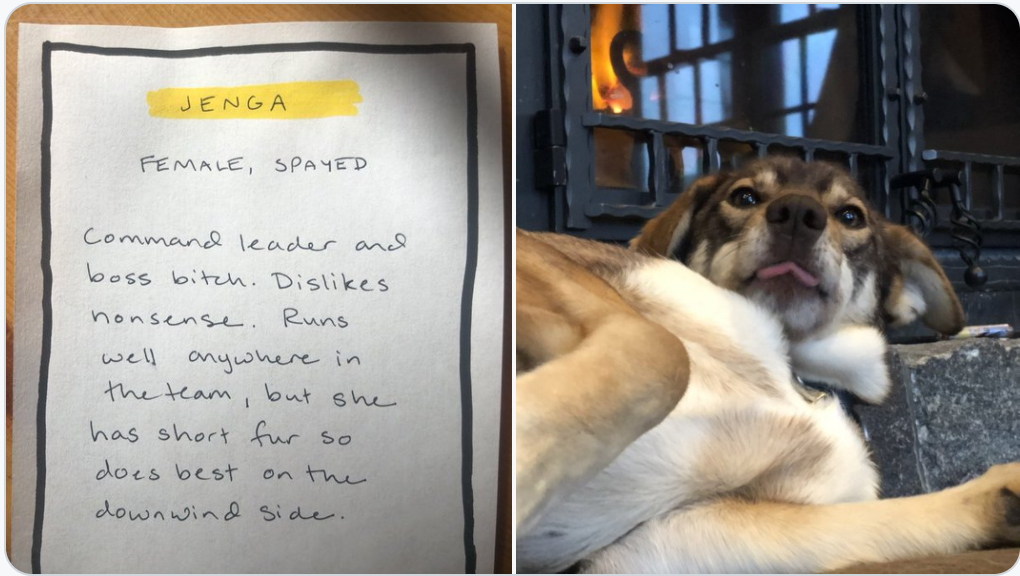 JENGA
FEMALE, SPAYED
Command leader and
boss bitch. Dislikes
nonsense. Runs
well anywhere in
the team, but she
has short fur so
does best on the
downwind side.